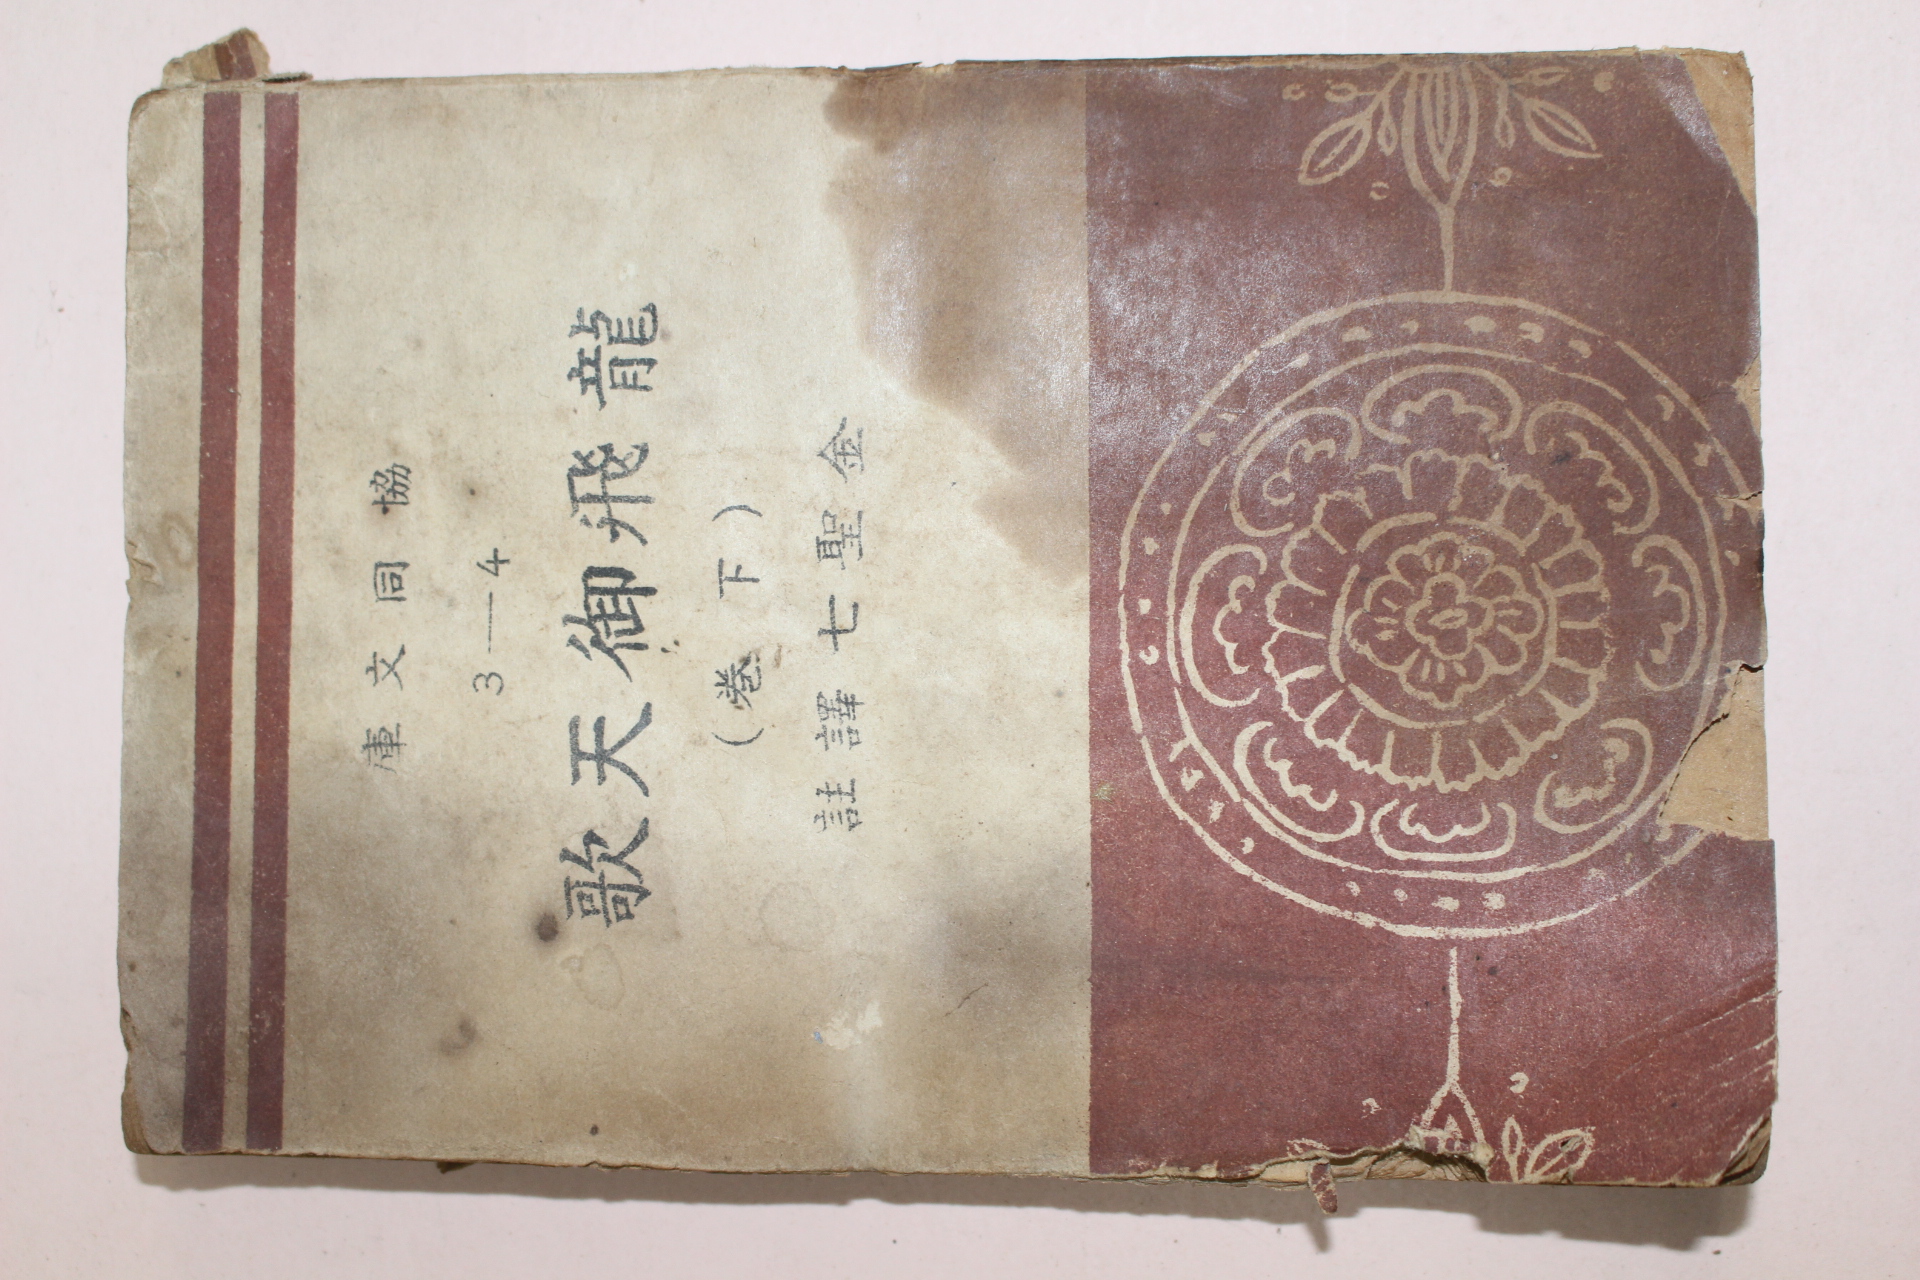 協同文庫
3—4
龍飛御天歌
(卷下)
金聖七譯註